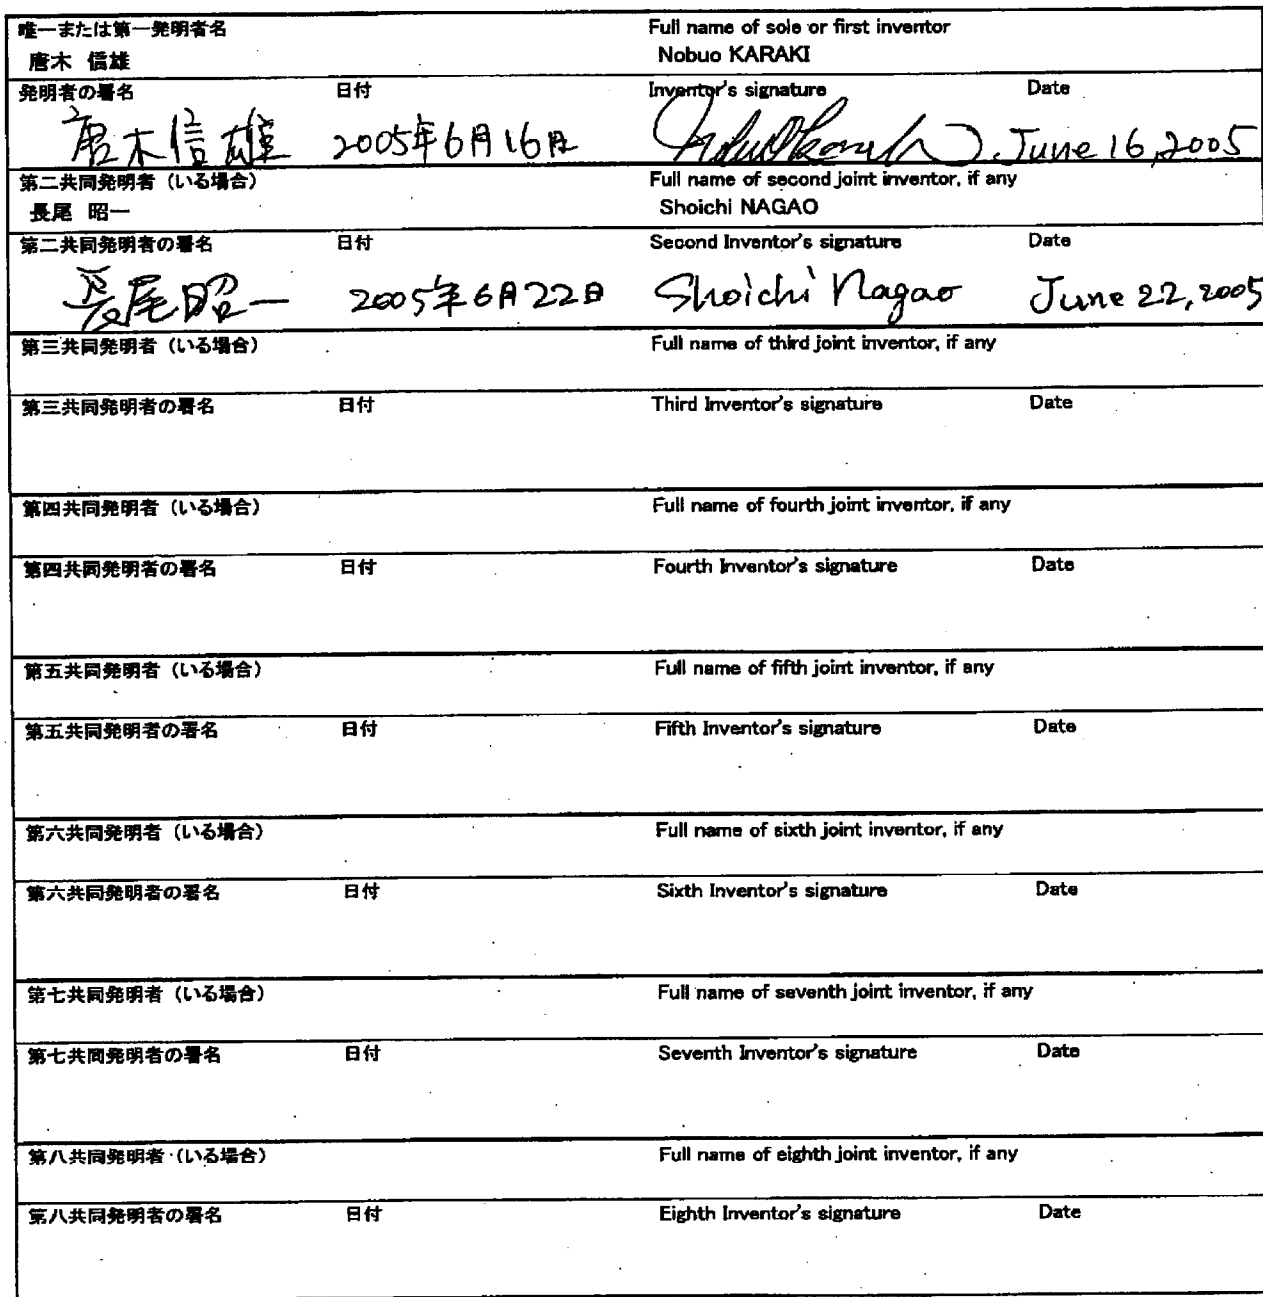 唯一または第一発明者名 Full name of sole or first inventor
唐木 信雄 Nobuo KARAKI
発明者の署名 日付 Inventor's signature Date
唐木信雄 2005年6月16日 June 16, 2005
第二共同発明者（いる場合） Full name of second joint inventor, if any
長尾 昭一 Shoichi NAGAO
第二共同発明者の署名 日付 Second Inventor's signature Date
長尾昭一 2005年6月22日 Shoichi Nagao June 22, 2005
第三共同発明者（いる場合） Full name of third joint inventor, if any
第三共同発明者の署名 日付 Third Inventor's signature Date
第四共同発明者（いる場合） Full name of fourth joint inventor, if any
第四共同発明者の署名 日付 Fourth Inventor's signature Date
第五共同発明者（いる場合） Full name of fifth joint inventor, if any
第五共同発明者の署名 日付 Fifth Inventor's signature Date
第六共同発明者（いる場合） Full name of sixth joint inventor, if any
第六共同発明者の署名 日付 Sixth Inventor's signature Date
第七共同発明者（いる場合） Full name of seventh joint inventor, if any
第七共同発明者の署名 日付 Seventh Inventor's signature Date
第八共同発明者（いる場合） Full name of eighth joint inventor, if any
第八共同発明者の署名 日付 Eighth Inventor's signature Date